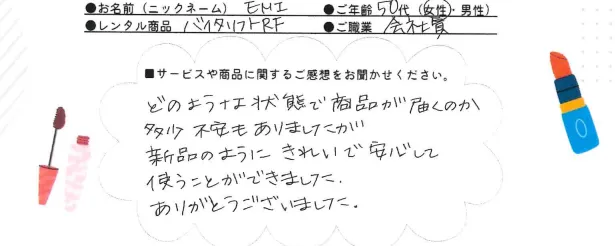 ●お名前(ニックネーム) EMI ●ご年齢 50代(女性・男性)
●レンタル商品 バイタリフトRF ●ご職業 会社員
■サービスや商品に関するご感想をお聞かせください。
どのような状態で商品が届くのか
多少 不安もありましたが
新品のように きれいで 安心して
使うことができました.
ありがとうございました。